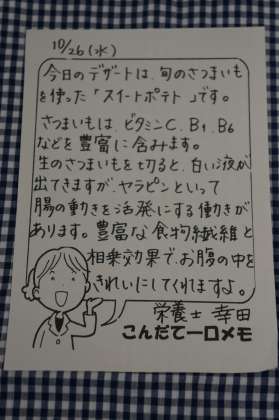 10/26(水)
今日のデザートは、旬のさつまいも
を使った「スイートポテト」です。
さつまいもは、ビタミンC、B1、B6
などを豊富に含みます。
生のさつまいもを切ると、白い液が
出てきますが、ヤラピンといって
腸の動きを活発にする働きが
あります。豊富な食物繊維と
相乗効果で、お腹の中を
きれいにしてくれますよ。
栄養士 幸田
こんだて一口メモ